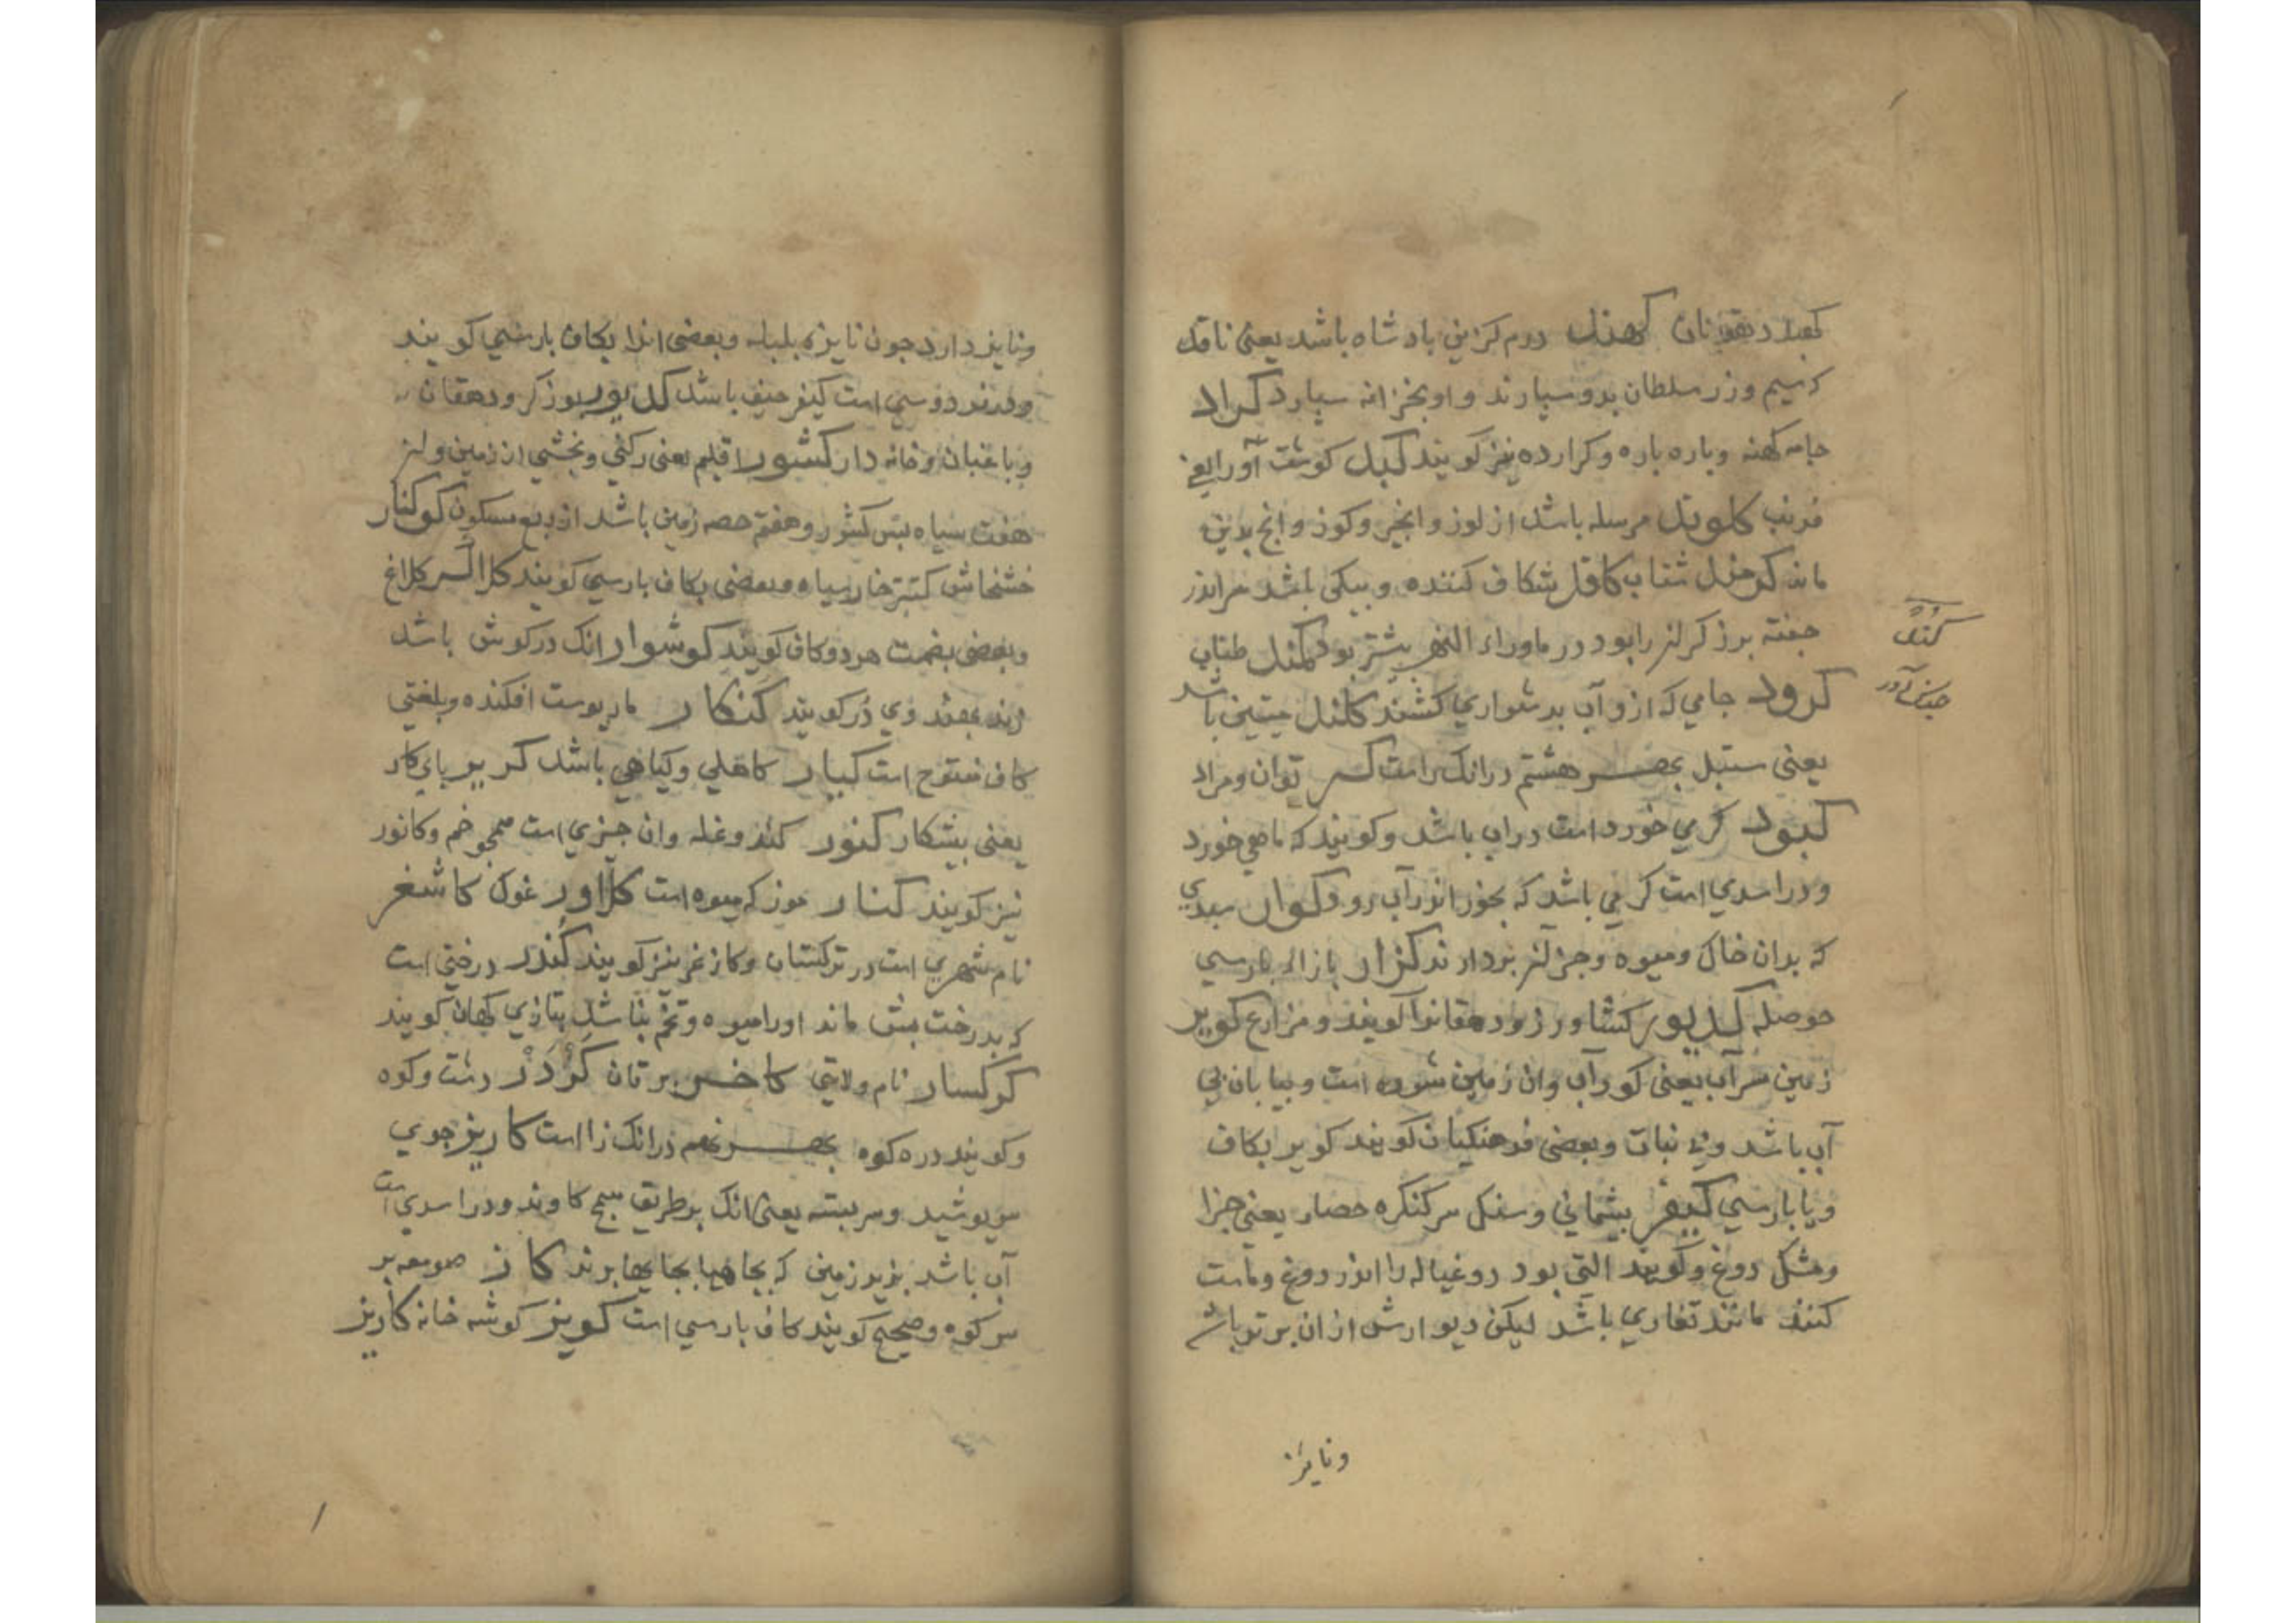 دهقانان کهبد درم گزین بادشاه باشد یعنی ناقد
که سیم و زر سلطان بدو سپارند و او بخزانه سپارد کراد
جامه کهنه و باره باره و کرارده نیز کویند کبد کوشت آور یعنی
فربه کلوند مرسله باشد از لوز و انجیر و کوز و انج بدین
ماند کرخند شتاب کافد شکافد کننده و بیکی باشد مر انرا
جفته برزکر انرا بود در ماوراء النهر بیشتر بود کمند طناب
کرود جامی که ازو آب بدشواری کشند کلند میتین باشد
یعنی ستبل بهر هشتم در انک را است کر توان و مراد
کبود کرمی خورد است در اب باشد و کویند که ماهی خورد
و در اسدی است کرمی باشد که بخورد اندر آب رود کوار سبدی
که بدان خاک و میوه و جز آن بردارند کزار بازاء بارسی
حوصله کدیور کشاورز و دهقانرا کویند و مزارع کویر
زمین سراب یعنی کور آب و ان زمین شوره است و بیابان بی
آب باشد و بی نبات و بعضی فرهنکیان کویند کویر بکاف
و یا بارسی کیفر بشیمانی و سنک سر کنکره حصار یعنی جزا
و مشک دوغ و کویند التی بود دوغیاله را اندر دوغ و ماست
کنند مانند تغاری باشد لیکن دیوارش از ان برتر باشد
کند
ونایژه
ونایژه دارد جون نایزه بلبله و بعضی انرا بکاف بارسی کویند
و در فردوسی است کیفر حیف باشد کدیور بوزکر و دهقان
و باغبان و خانه دار کشور اقلیم یعنی رکنی و بخشی از زمین و از
هفت سیاه بس کشور و هفتم حصه زمین باشد از ربع مسکون کوکنار
خشخاش کبتر خار سیاه و بعضی بکاف بارسی کویند کلاالسر کلاغ
و بعضی بضمت هر دو کاف کویند کوشوار انک در کوش باشد
زنند بهند وی دُر کویند کنکار مار پوست افکنده و بلغتی
کاف مفتوح است کیار کاهلی و کیاهی باشد کریر بای کار
یعنی بیشکار کنور کندو غله وان جیزی است همجو خم و کانور
نیز کویند کنار موز که میوه است کلاور غوک کاشغر
نام شهری است در ترکستان و کازغر نیز کویند کندر درختی است
که بدرخت بسته ماند او را میوه و تخم نباشد بتازی کهان کویند
کرکسار نام ولایتی کاخر برقان کردر دشت و کوه
و کویند دره کوه بهر نهم در انک زا است کاریز جوی
سربوشید و سر بسته یعنی انک بر طریق سمج کاوند و در اسدی است
آب باشد بزیر زمین که بجاهها بجایها برند کاز صومعه بر
سر کوه و صحیح کویند کاف بارسی است کویز کوشه خانه کاریز